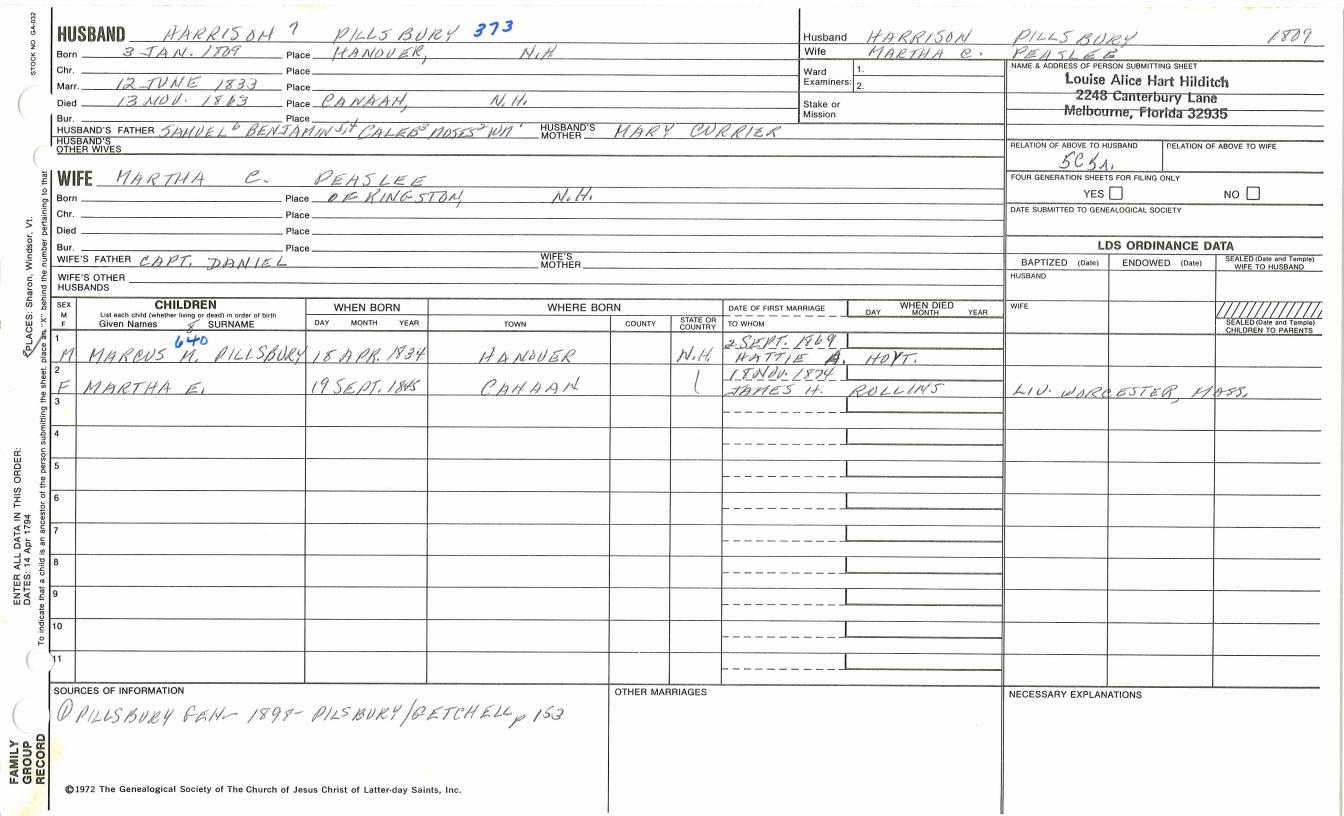 STOCK NO GA-032
HUSBAND HARRISON 7 PILLSBURY 373
Born 3 JAN. 1809 Place HANOVER, N.H
Chr. Place
Marr. 12 JUNE 1833 Place
Died 13 NOV. 1863 Place CANAAN, N.H.
Bur. Place
HUSBAND'S FATHER SAMUEL 6 BENJAMIN 5,4 CALEB 3 MOSES 2 WM 1 HUSBAND'S MOTHER MARY CURRIER
HUSBAND'S OTHER WIVES
WIFE MARTHA C. PEASLEE
Born Place OF KINGSTON, N.H.
Chr. Place
Died Place
Bur. Place
WIFE'S FATHER CAPT. DANIEL WIFE'S MOTHER
WIFE'S OTHER HUSBANDS
Husband HARRISON PILLSBURY 1809
Wife MARTHA C. PEASLEE
Ward Examiners: 1.
2.
Stake or Mission
NAME & ADDRESS OF PERSON SUBMITTING SHEET
Louise Alice Hart Hilditch
2248 Canterbury Lane
Melbourne, Florida 32935
RELATION OF ABOVE TO HUSBAND RELATION OF ABOVE TO WIFE
FOUR GENERATION SHEETS FOR FILING ONLY
YES NO
DATE SUBMITTED TO GENEALOGICAL SOCIETY
LDS ORDINANCE DATA
BAPTIZED (Date) ENDOWED (Date) SEALED (Date and Temple) WIFE TO HUSBAND
HUSBAND
WIFE
SEALED (Date and Temple) CHILDREN TO PARENTS
SEX M F
CHILDREN
List each child (whether living or dead) in order of birth
Given Names 8 SURNAME
WHEN BORN
DAY MONTH YEAR
WHERE BORN
TOWN COUNTY STATE OR COUNTRY
DATE OF FIRST MARRIAGE
TO WHOM
WHEN DIED
DAY MONTH YEAR
640 2 SEPT. 1869
1 M MARCUS M. PILLSBURY 18 APR. 1834 HANOVER N.H. HATTIE A. HOYT.
18 NOV. 1874
2 F MARTHA E. 19 SEPT. 1845 CANAAN JAMES H. ROLLINS LIV. WORCESTER, MASS.
3
4
5
6
7
8
9
10
11
SOURCES OF INFORMATION
① PILLSBURY GEN- 1898- PILSBURY/GETCHELL p 153
OTHER MARRIAGES
NECESSARY EXPLANATIONS
©1972 The Genealogical Society of The Church of Jesus Christ of Latter-day Saints, Inc.
FAMILY
GROUP
RECORD
ENTER ALL DATA IN THIS ORDER:
DATES: 14 Apr 1794
PLACES: Sharon, Windsor, Vt.
To indicate that a child is an ancestor of the person submitting the sheet, place an "X" behind the number pertaining to that